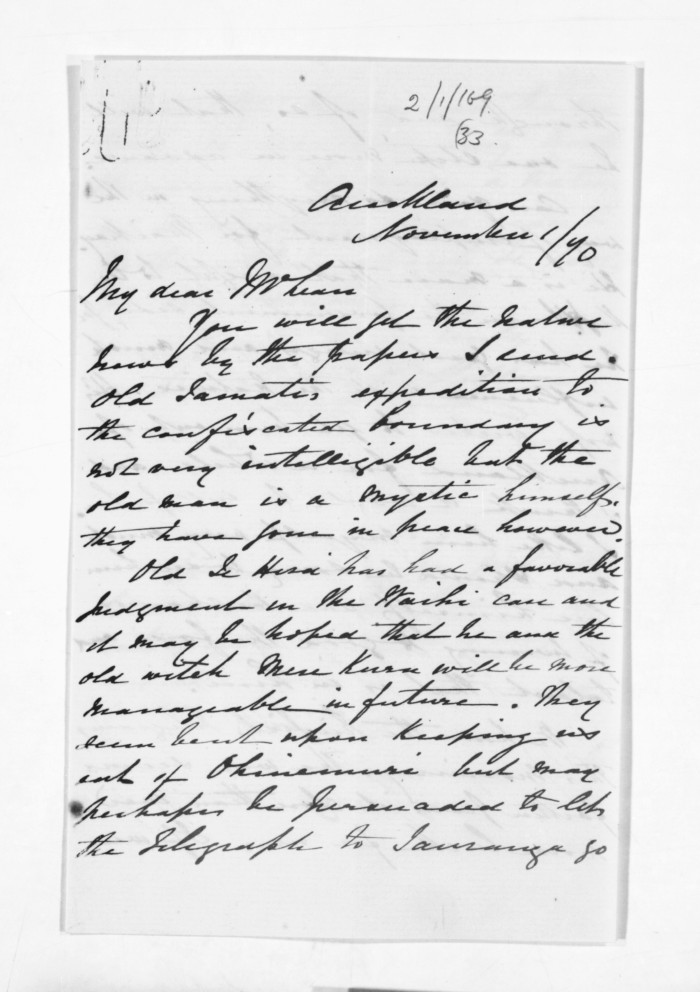 2/1/169
(33.
Auckland
November 1/70
My dear McLean
You will get the Native
news by the papers I send.
Old Tamati's expedition to
the confiscated boundary is
not very intelligible but the
old man is a mystic himself.
they have gone in peace however.
Old Te Hira has had a favorable
Judgment in the Waihi case and
it may be hoped that he and the
old witch Mere Kuru will be more
manageable in future. They
seem bent upon keeping us
out of Ohinemuri but may
perhaps be persuaded to let
the Telegraph to Tauranga go